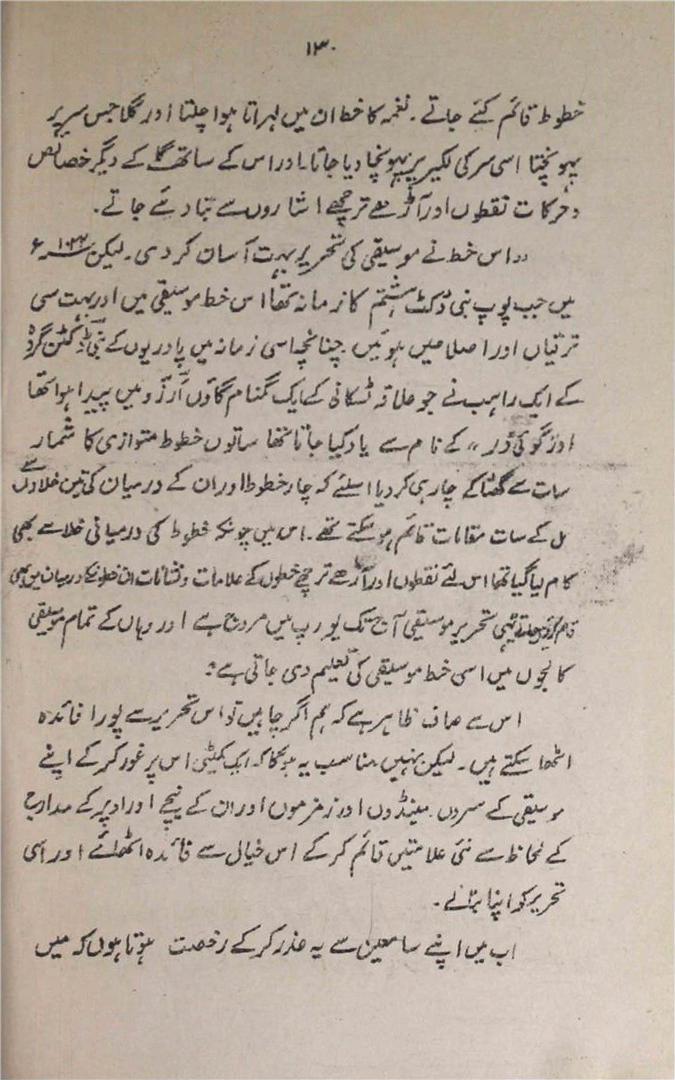 ۱۳۰
خطوط قائم کئے جاتے۔ نغمہ کا خط ان میں لہراتا ہوا چلتا اور گلا جس سر پر
پہونچتا اسی سر کی لکیر پر پہونچا دیا جاتا۔ اور اس کے ساتھ گلے کے دیگر خصائص
و حرکات نقطوں اور آڑے ترچھے اشاروں سے بتا دئے جاتے۔
"اس خط نے موسیقی کی تحریر بہت آسان کر دی۔ لیکن ء
میں جب پوپ بنی ڈکٹ ہشتم کا زمانہ تھا اس خط موسیقی میں اور بہت سی
ترقیاں اور اصلاحیں ہوئیں چنانچہ اسی زمانہ میں پادریوں کے بنی ڈکٹن گروہ
کے ایک راہب نے جو علاقہ ٹسکانی کے ایک گمنام گاؤں آرزو میں پیدا ہوا تھا
اور گوئی ڈر" کے نام سے یاد کیا جاتا تھا ساتوں خطوط متوازی کا شمار
سات سے گھٹا کے چار ہی کر دیا اسلئے کہ چار خطوط اور ان کے درمیان کی تین خلاؤں سے
مل کے سات مقامات قائم ہو سکتے تھے۔ اس میں چونکہ خطوط کی درمیانی خلا سے بھی
کام لیا گیا تھا اس لئے نقطوں اور آڑے ترچھے خطوں کے علامات و نشانات ان خطوں کے درمیان میں بھی
قائم جاتے یہی تحریر موسیقی آج تک یورپ میں مروج ہے اور وہاں کے تمام موسیقی
کالجوں میں اسی خط موسیقی کی تعلیم دی جاتی ہے:
اس سے صاف ظاہر ہے کہ ہم اگر چاہیں تو اس تحریر سے پورا فائدہ
اٹھا سکتے ہیں۔ لیکن نہیں مناسب یہ ہوگا کہ ایک کمیٹی اس پر غور کر کے اپنے
موسیقی کے سروں، مینڈوں اور زمزموں اور ان کے نیچے اور اوپر کے مدارج
کے لحاظ سے نئی علامتیں قائم کر کے اس خیال سے فائدہ اٹھائے اور اسی
تحریر کو اپنا بنائے۔
اب میں اپنے سامعین سے یہ عذر کر کے رخصت ہوتا ہوں کہ میں